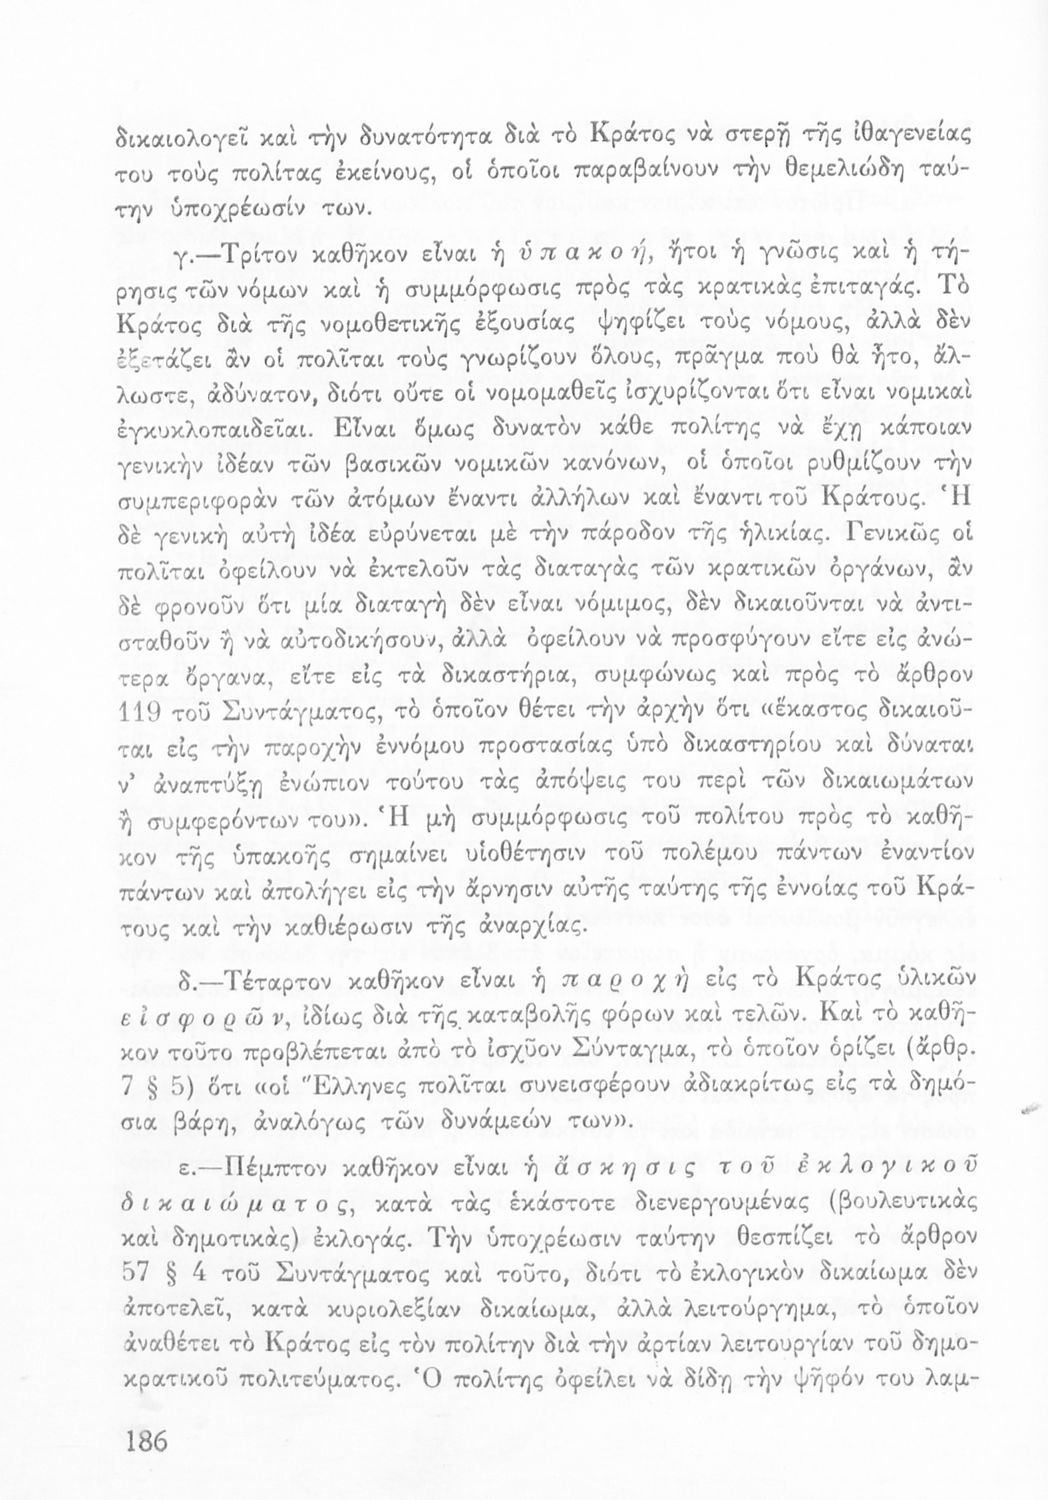 δικαιολογεῖ καὶ τὴν δυνατότητα διὰ τὸ Κράτος νὰ στερῇ τῆς ἰθαγενείας
του τοὺς πολίτας ἐκείνους, οἱ ὁποῖοι παραβαίνουν τὴν θεμελιώδη ταύ-
την ὑποχρέωσίν των.
γ.—Τρίτον καθῆκον εἶναι ἡ ὑπακοή, ἤτοι ἡ γνῶσις καὶ ἡ τή-
ρησις τῶν νόμων καὶ ἡ συμμόρφωσις πρὸς τὰς κρατικὰς ἐπιταγάς. Τὸ
Κράτος διὰ τῆς νομοθετικῆς ἐξουσίας ψηφίζει τοὺς νόμους, ἀλλὰ δὲν
ἐξετάζει ἂν οἱ πολῖται τοὺς γνωρίζουν ὅλους, πρᾶγμα ποὺ θὰ ἦτο, ἄλ-
λωστε, ἀδύνατον, διότι οὔτε οἱ νομομαθεῖς ἰσχυρίζονται ὅτι εἶναι νομικαὶ
ἐγκυκλοπαιδεῖαι. Εἶναι ὅμως δυνατὸν κάθε πολίτης νὰ ἔχῃ κάποιαν
γενικὴν ἰδέαν τῶν βασικῶν νομικῶν κανόνων, οἱ ὁποῖοι ρυθμίζουν τὴν
συμπεριφορὰν τῶν ἀτόμων ἔναντι ἀλλήλων καὶ ἔναντι τοῦ Κράτους. Ἡ
δὲ γενικὴ αὐτὴ ἰδέα εὐρύνεται μὲ τὴν πάροδον τῆς ἡλικίας. Γενικῶς οἱ
πολῖται ὀφείλουν νὰ ἐκτελοῦν τὰς διαταγὰς τῶν κρατικῶν ὀργάνων, ἂν
δὲ φρονοῦν ὅτι μία διαταγὴ δὲν εἶναι νόμιμος, δὲν δικαιοῦνται νὰ ἀντι-
σταθοῦν ἢ νὰ αὐτοδικήσουν, ἀλλὰ ὀφείλουν νὰ προσφύγουν εἴτε εἰς ἀνώ-
τερα ὄργανα, εἴτε εἰς τὰ δικαστήρια, συμφώνως καὶ πρὸς τὸ ἄρθρον
119 τοῦ Συντάγματος, τὸ ὁποῖον θέτει τὴν ἀρχὴν ὅτι «ἕκαστος δικαιοῦ-
ται εἰς τὴν παροχὴν ἐννόμου προστασίας ὑπὸ δικαστηρίου καὶ δύναται
ν’ ἀναπτύξῃ ἐνώπιον τούτου τὰς ἀπόψεις του περὶ τῶν δικαιωμάτων
ἢ συμφερόντων του». Ἡ μὴ συμμόρφωσις τοῦ πολίτου πρὸς τὸ καθῆ-
κον τῆς ὑπακοῆς σημαίνει υἱοθέτησιν τοῦ πολέμου πάντων ἐναντίον
πάντων καὶ ἀπολήγει εἰς τὴν ἄρνησιν αὐτῆς ταύτης τῆς ἐννοίας τοῦ Κρά-
τους καὶ τὴν καθιέρωσιν τῆς ἀναρχίας.
δ.—Τέταρτον καθῆκον εἶναι ἡ παροχὴ εἰς τὸ Κράτος ὑλικῶν
εἰσφορῶν, ἰδίως διὰ τῆς καταβολῆς φόρων καὶ τελῶν. Καὶ τὸ καθῆ-
κον τοῦτο προβλέπεται ἀπὸ τὸ ἰσχῦον Σύνταγμα, τὸ ὁποῖον ὁρίζει (ἄρθρ.
7 § 5) ὅτι «οἱ Ἕλληνες πολῖται συνεισφέρουν ἀδιακρίτως εἰς τὰ δημό-
σια βάρη, ἀναλόγως τῶν δυνάμεών των».
ε.—Πέμπτον καθῆκον εἶναι ἡ ἄσκησις τοῦ ἐκλογικοῦ
δικαιώματος, κατὰ τὰς ἑκάστοτε διενεργουμένας (βουλευτικὰς
καὶ δημοτικὰς) ἐκλογάς. Τὴν ὑποχρέωσιν ταύτην θεσπίζει τὸ ἄρθρον
57 § 4 τοῦ Συντάγματος καὶ τοῦτο, διότι τὸ ἐκλογικὸν δικαίωμα δὲν
ἀποτελεῖ, κατὰ κυριολεξίαν δικαίωμα, ἀλλὰ λειτούργημα, τὸ ὁποῖον
ἀναθέτει τὸ Κράτος εἰς τὸν πολίτην διὰ τὴν ἀρτίαν λειτουργίαν τοῦ δημο-
κρατικοῦ πολιτεύματος. Ὁ πολίτης ὀφείλει νὰ δίδῃ τὴν ψῆφόν του λαμ-
186